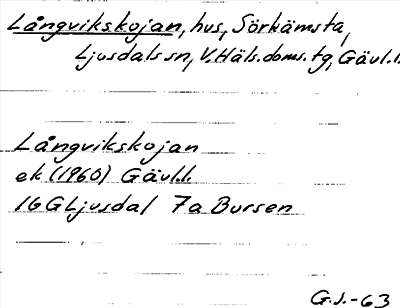 Långvikskojan, hus, Sörkämsta,
Ljusdals sn, V.Häls.doms.tg, Gävl.l.
Långvikskojan
ek (1960) Gävl.l.
16G Ljusdal 7a Bursen
G.J.-63